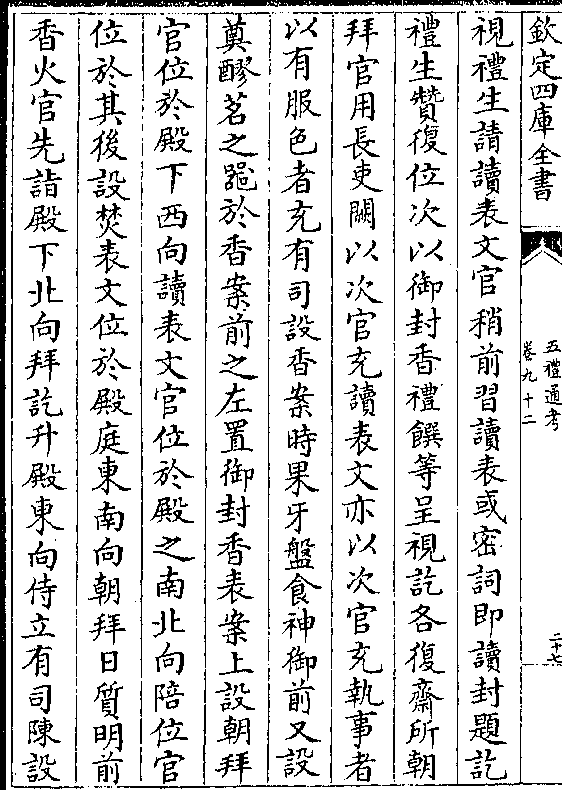 欽定四庫全書
五禮通考
卷九十二
二十七
視禮生請讀表文官稍前習讀表或密詞即讀封題訖
禮生贊復位次以御封香禮饌等呈視訖各復齋所朝
拜官用長吏闕以次官充讀表文亦以次官充執事者
以有服色者充有司設香案時果牙盤食神御前又設
奠醪茗之𨂐於香案前之左置御封香表案上設朝拜
官位於殿下西向讀表文官位於殿之南北向陪位官
位於其後設焚表文位於殿庭東南向朝拜日質明前
香火官先詣殿下北向拜訖升殿東向侍立有司陳設